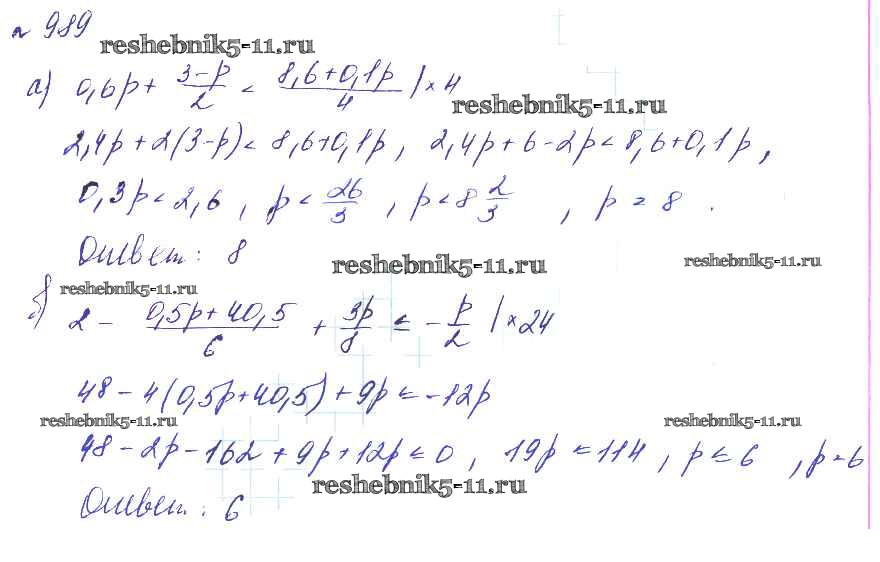 № 989
reshebnik5-11.ru
а) 0,6p + (3-p)/2 < (8,6+0,1p)/4 | × 4
reshebnik5-11.ru
2,4p + 2(3-p) < 8,6+0,1p, 2,4p + 6 - 2p < 8,6 + 0,1p,
0,3p < 2,6, p < 26/3, p < 8 2/3, p = 8.
Ответ: 8
reshebnik5-11.ru
reshebnik5-11.ru
reshebnik5-11.ru
б) 2 - (0,5p + 40,5)/6 + 3p/8 ≤ - p/2 | × 24
48 - 4(0,5p + 40,5) + 9p ≤ -12p
reshebnik5-11.ru
reshebnik5-11.ru
48 - 2p - 162 + 9p + 12p ≤ 0, 19p ≤ 114, p ≤ 6, p = 6
reshebnik5-11.ru
Ответ: 6